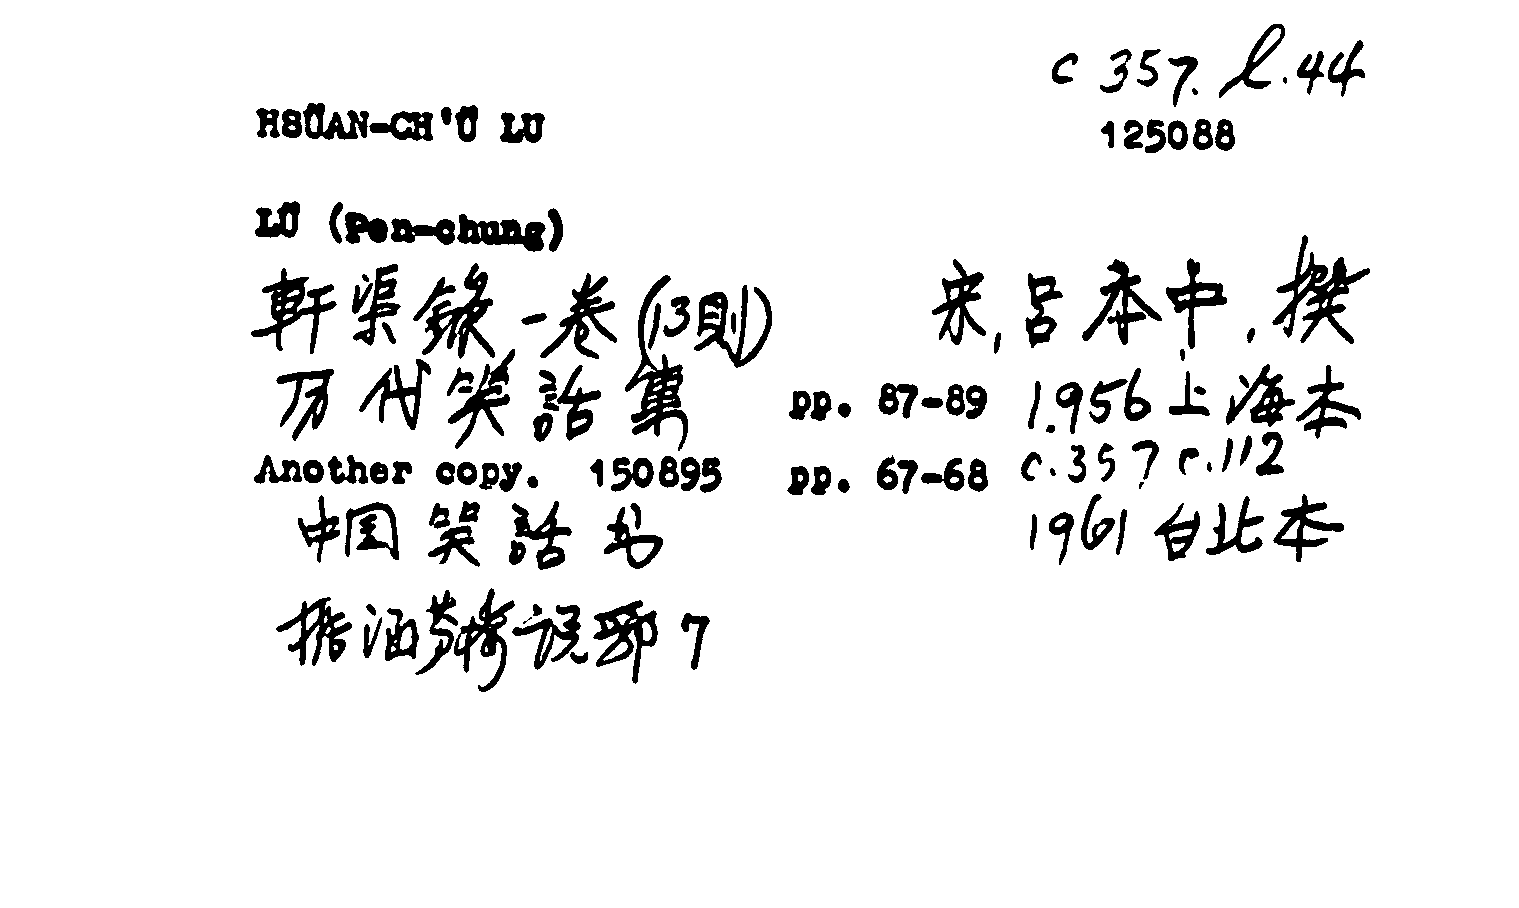 c 357. l. 44
HSÜAN-CH'Ü LU
125088
LÜ (Pen-chung)
軒渠錄 一卷 (13則) 宋, 呂本中. 撰
万代笑話集 pp. 87-89 1956 上海本
Another copy. 150895 pp. 67-68 c. 357 c. 112
中国笑話书 1961 台北本
据涵芬楼説郛 7